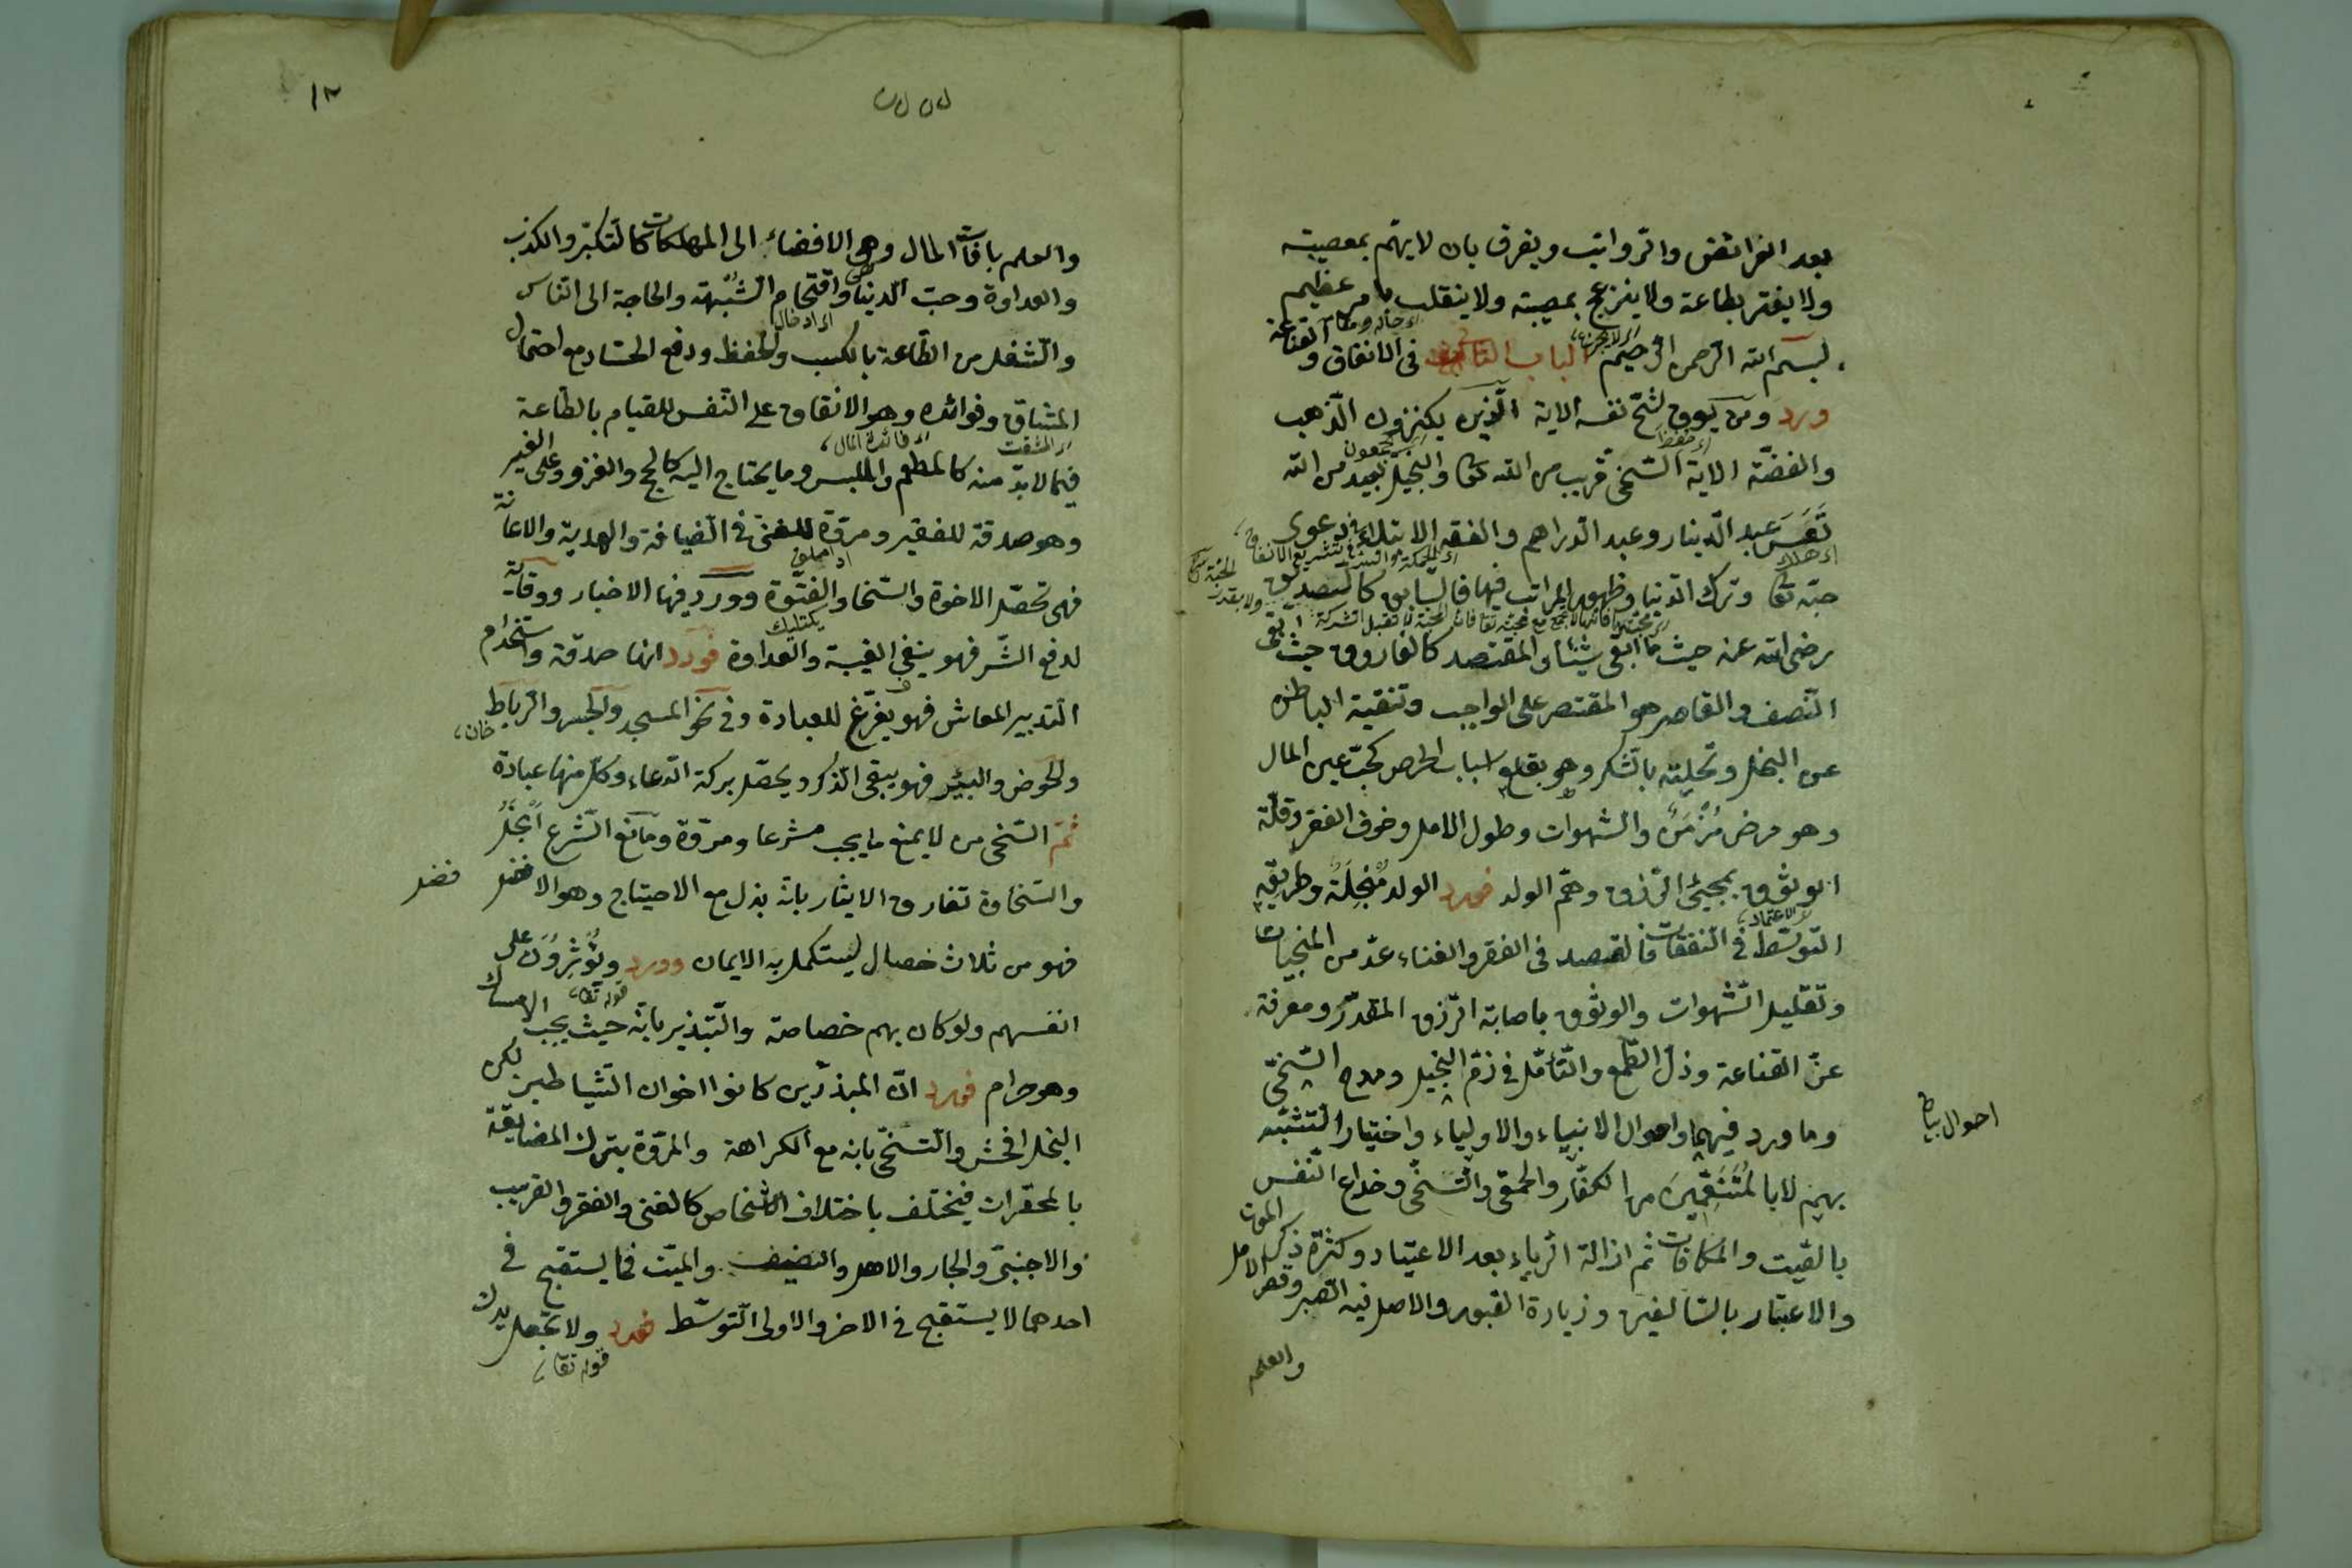 بعد الفرائض والرواتب ويفرق بان لا يهتم بمعصيته
ولا يغتر بطاعة ولا ينزعج بمصيبة ولا ينقلب بامر عظيم
بسم الله الرحمن الرحيم الباب فى الانفاق والقناعة
ورد ومن يوق شح نفسه الاية الذين يكنزون الذهب
والفضة الاية السخى قريب من الله تعا والبخيل بعيد من الله
تَعَسَ عبد الدينار وعبد الدراهم والفقه الابتلاء فى دعوى
حبه تعا وترك الدنيا وظهور المراتب فيها فالسابق كالصديق
رضى الله عنه حيث ما ابقى شيئا والمقتصد كالفاروق حيث ابقى
النصف والقاصر هو المقتصر على الواجب وتنقية الباطن
عن البخل وتحليته بالشكر وهو بقلع اسباب الحرص كحب عين المال
وهو مرض مُزْمَنٌ والشهوات وطول الامل وخوف الفقر وقلة
الوثوق بمجيئ الرزق وهم الولد فورد الولد مُبْخِلَةٌ وطريقه
التوسط فى النفقات فالقصد فى الفقر والغناء عد من المنجيات
وتقليل الشهوات والوثوق باصابة الرزق المقدر ومعرفة
عز القناعة وذل الطمع والتأمل فى ذم البخيل ومدح السخى
وما ورد فيهما واحوال الانبياء والاولياء واختيار التشبه
احوال
بهم لا بالمُتَنَعِّمِينَ من الكفار والحمقى والتسخى وخداع النفس
بالصيت والمكافات ثم ازالة الرياء بعد الاعتياد وكثرة ذكر الموت
والاعتبار بالسالفين وزيارة القبور والاصل فيه الصبر وقصر الامل
والعلم
١٢
والعلم بافات المال وهى الافضاء الى المهلكات كالتكبر والكذب
والعداوة وحب الدنيا واقتحام الشبهة والحاجة الى الناس
والشغل من الطاعة بالكسب والحفظ ودفع الحساد مع احتمال
المشاق وفوائده وهو الانفاق على النفس للقيام بالطاعة
فيما لا بد منه كالمطعم والملبس وما يحتاج اليه كالحج والغزو وعلى الغير
وهو صدقة للفقير ومروة للغنى فى الضيافة والهدية والاعانة
فهى تحصل الاخوة والسخا والفتوة وورد فيها الاخبار ووقاية
لدفع الشر فهو ينفى الغيبة والعداوة فورد انها صدقة واستخدام
التدبير المعاش فهو يفرغ للعبادة وفى نحو المسجد والجسر والرباط
خان
والحوض والبئر فهو يبقى الذكر ويحصل بركة الدعاء وكل منها عبادة
ثم السخى من لا يمنع ما يجب شرعا ومروة ومانع الشرع ابخل
والسخاوة تفارق الايثار بانه بذل مع الاحتياج وهو الافضل
فضل
فهو من ثلاث خصال ليستكمل به الايمان وورد ويُؤْثِرُونَ على
قوله تعا
انفسهم ولو كان بهم خصاصة والتبذير بانه حيث يجب الامساك
وهو حرام فورد ان المبذرين كانوا اخوان الشياطين لكن
البخل افحش والتسخى بانه مع الكراهة والمروة بترك المضايقة
بالمحقرات فيختلف باختلاف الاشخاص كالغنى والفقر والقريب
والاجنبى والجار والاهل والضيف والميت فما يستقبح فى
احدهما لا يستقبح فى الاخر والاولى التوسط فورد ولا تجعل يدك
قوله تعا